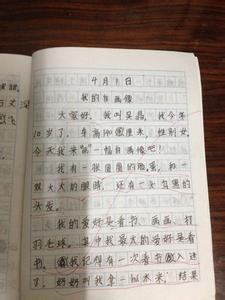 4月1日
我的自画像
大家好，我叫吴晶，我今年
10岁了，身高 厘米，性别女，
今天我来 一幅自画像吧！
我有一张圆圆的脸蛋，和一
双大大的眼睛，还有一 乌黑的
头发。
我的爱好是看书、画画、打
羽毛球，其中我最大的爱好是看
书。 我记得有一次看书 入迷
了，妈妈叫我拿一 水来，结果